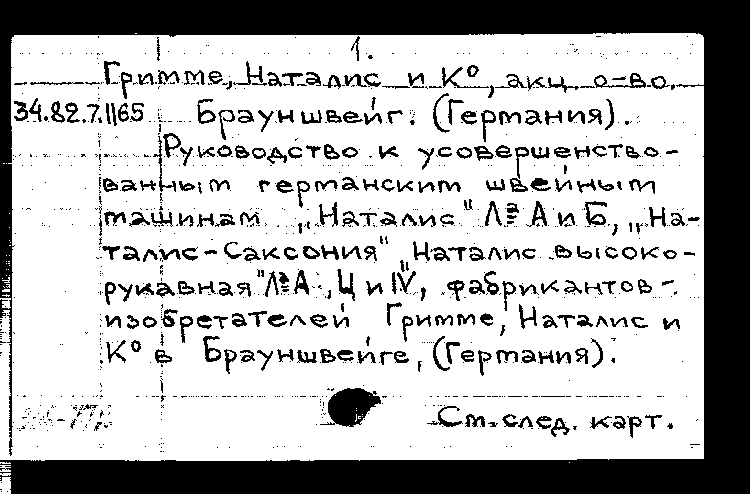 1.
Гримме, Наталис и К⁰, акц. о-во.
34.82.7.||65 Брауншвейг. (Германия).
Руководство к усовершенство-
ванным германским швейным
машинам „Наталис" Лª А и Б, „На-
талис-Саксония" „Наталис высоко-
рукавная" Лª А, Ц и IV, фабрикантов-
изобретателей Гримме, Наталис и
К⁰ в Брауншвейге, (Германия).
См. след. карт.